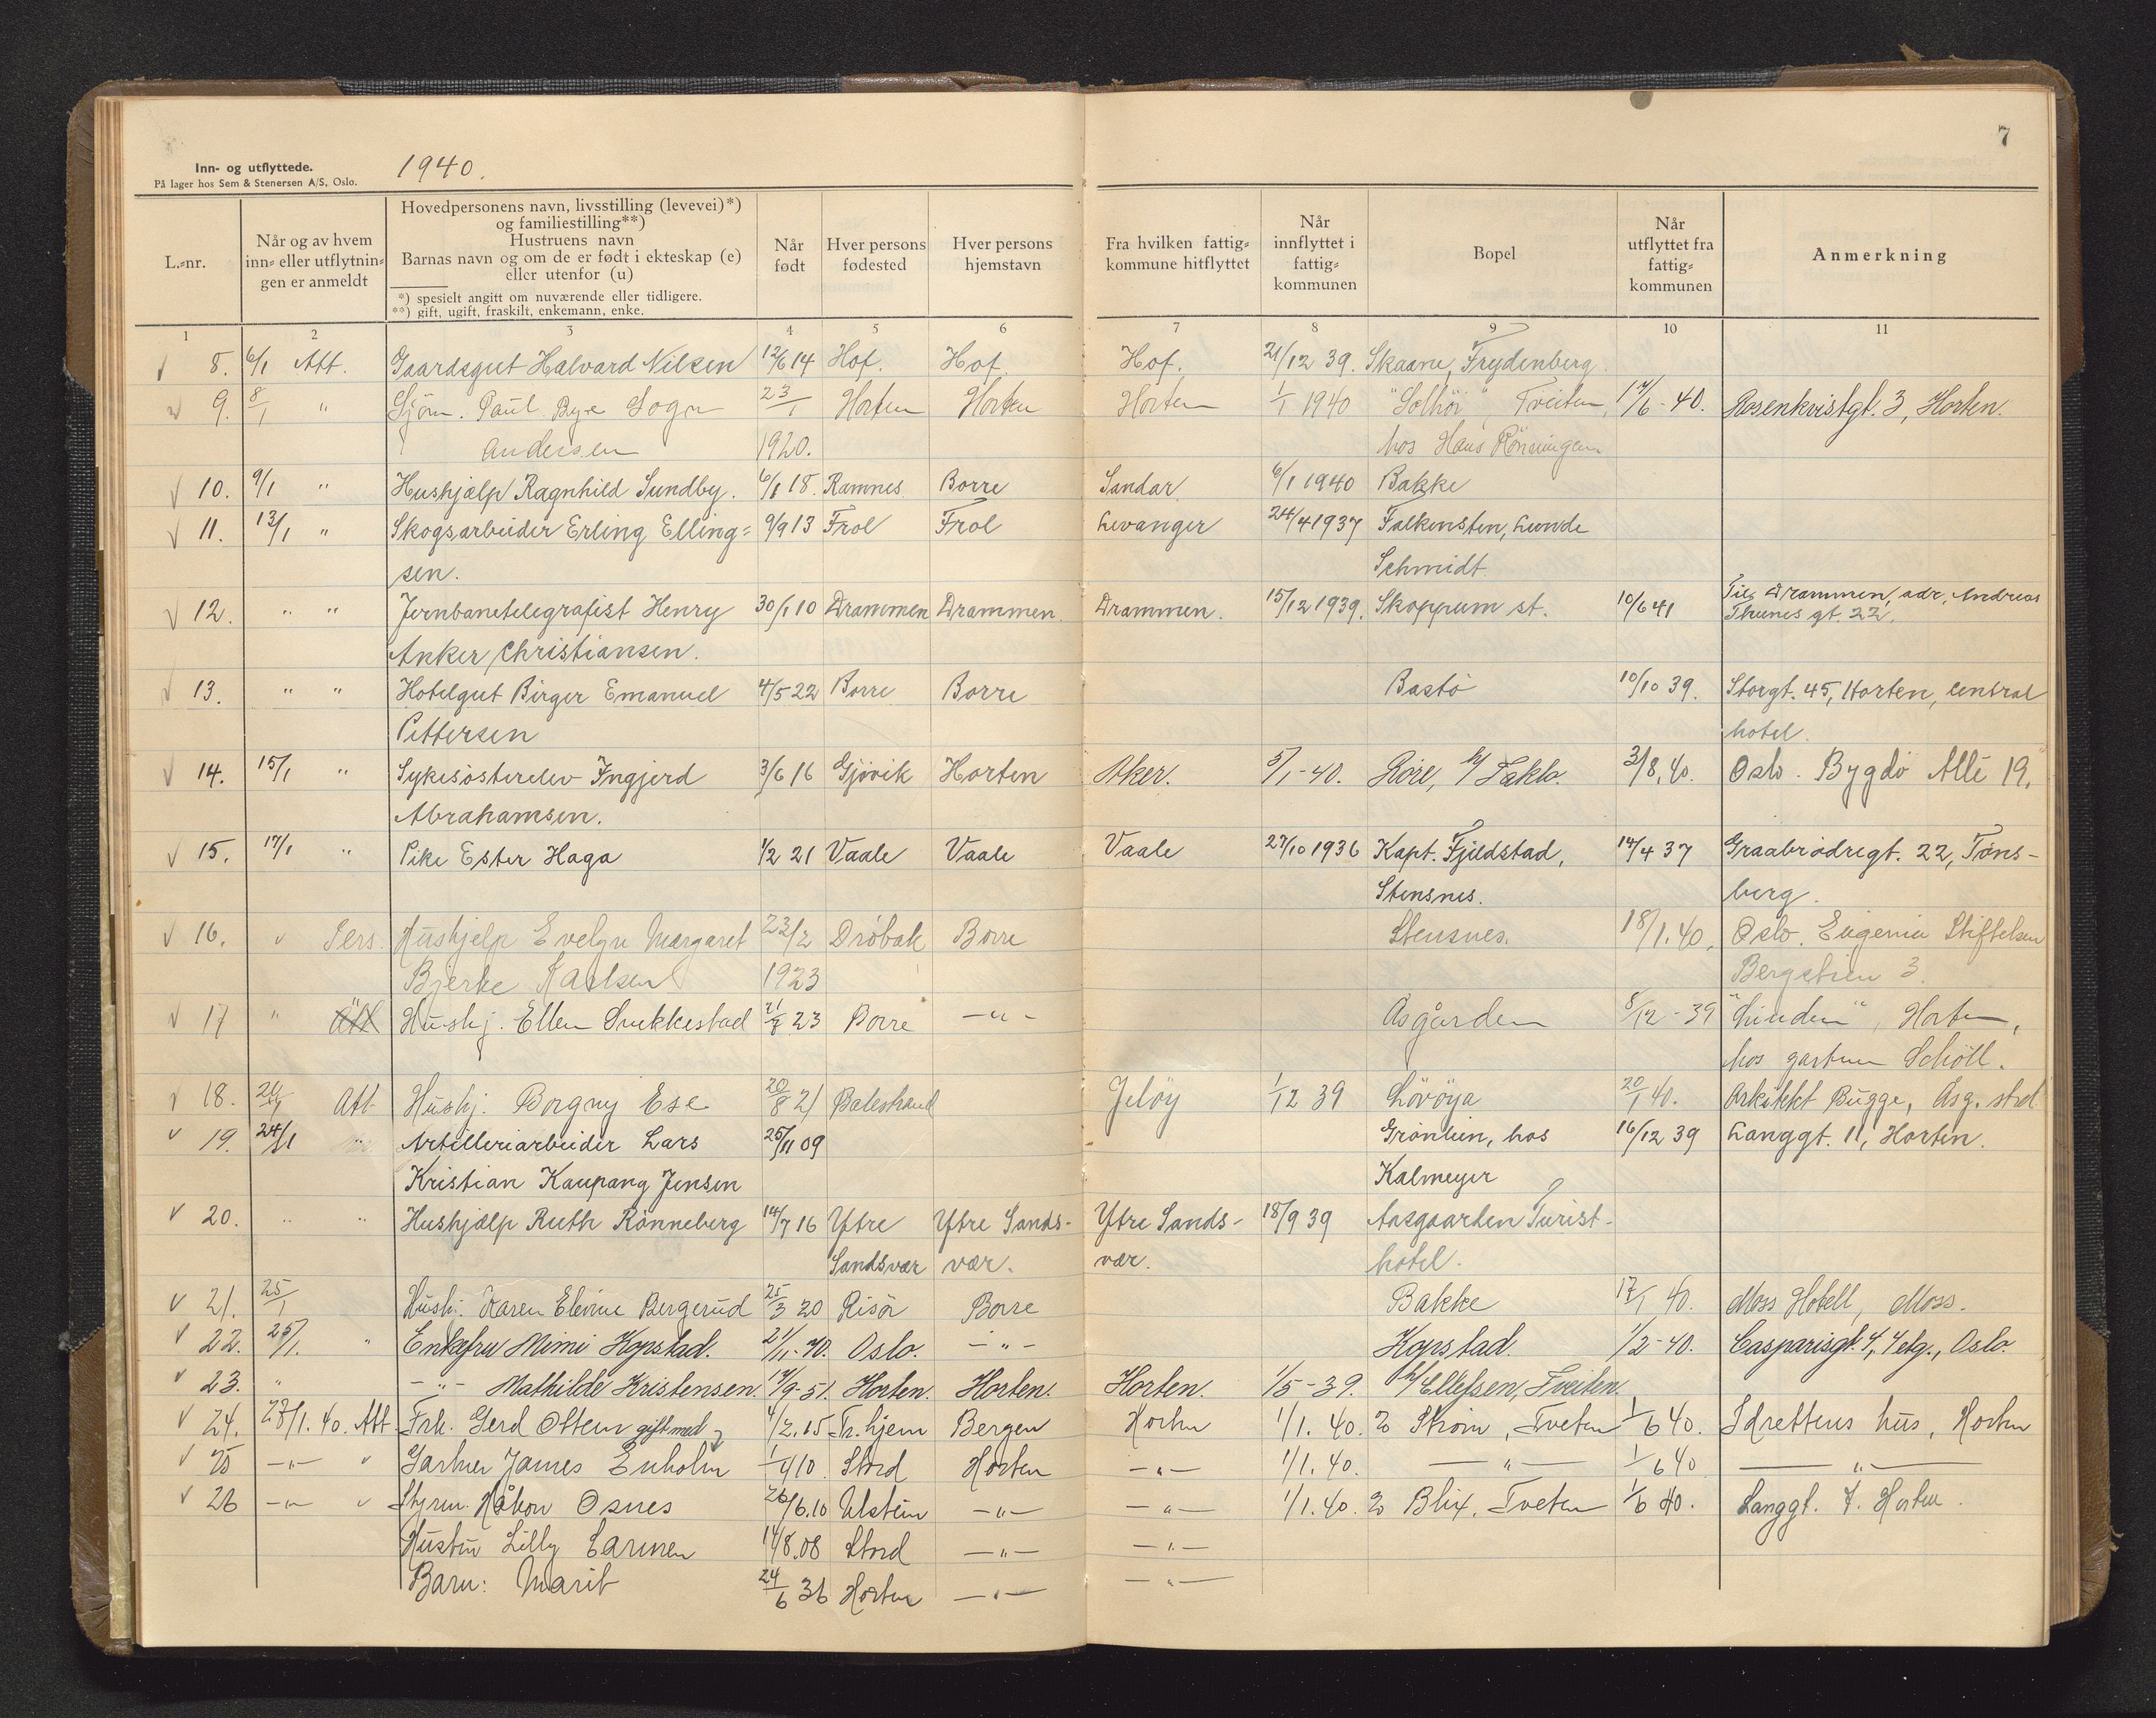 7
Inn- og utflyttede.
På lager hos Sem & Stenersen A/S, Oslo.
1940.
L.-nr.
Når og av hvem
inn- eller utflytnin-
gen er anmeldt
Hovedpersonens navn, livsstilling (levevei)*)
og familiestilling**)
Hustruens navn
Barnas navn og om de er født i ekteskap (e)
eller utenfor (u)
*) spesielt angitt om nuværende eller tidligere.
**) gift, ugift, fraskilt, enkemann, enke.
Når
født
Hver persons
fødested
Hver persons
hjemstavn
Fra hvilken fattig-
kommune hitflyttet
Når
innflyttet i
fattig-
kommunen
Bopel
Når
utflyttet fra
fattig-
kommunen
Anmerkning
1 2 3 4 5 6 7 8 9 10 11
8. 6/1 Att. Gaardsgut Halvard Nilsen 12/6 14 Hof. Hof. Hof. 21/12 39. Skaane, Frydenberg.
9. 8/1 " Sjøm. Paul Bye Sogn 23/1 Horten Horten Horten 1/1 1940 "Solhöi", Tveiten, 17/6-40. Rosenkvistgt. 3, Horten.
Andersen 1920. hos Hans Rönningen
10. 9/1 " Hushjælp Ragnhild Sundby. 6/1 18. Ramnes Borre Sandar 6/1 1940 Bakke
11. 13/1 " Skogsarbeider Erling Elling= 9/9 13 Frol Frol Levanger 24/4 1937 Falkensten, Lunde
sen. Schmidt
12. " " Jernbanetelegrafist Henry 30/1 10 Drammen Drammen. Drammen. 15/12 1939. Skoppum st. 10/6 41 Til Drammen, adr. Andreas
Anker Christiansen. Thunes gt. 22.
13. " " Hotelgut Birger Emanuel 4/5 22 Borre Borre Bastö 10/10 39. Storgt. 45, Horten, Central
Pettersen hotel.
14. 15/1 " Sykesösterelev Ingjerd 3/6 16 Gjövik Horten Aker. 5/1-40. Röre, h/ Takle. 3/8.40. Oslo. Bygdö Allé 19.
Abrahamsen.
15. 17/1 " Pike Ester Haga 1/2 21 Vaale Vaale Vaale 27/10 1936 Kapt. Fjeldstad, 14/4 37 Graabrödregt. 22, Töns-
Stensnes. berg.
16. " Pers. Hushjelp Evelyn Margaret 23/2 Dröbak Borre Stensnes. 18/1.40. Oslo. Eugenia Stiftelsen
Bjerke Karlsen 1923 Bergstien 3.
17 " Att Hushj. Ellen Snekkestad 23 Borre -"- Åsgården 8/12-39 "Linden", Horten,
hos gartner Schöll.
18. Att Hushj. Borgny Ese 20/8 21 Balestrand Jelöy 1/12 39 Lövöya 20/1 40. Arkitekt Bugge, Åsg. strd
19. 24/1 Artilleriarbeider Lars 25/11 09 Grönlien, hos 16/12 39 Langgt. 11, Horten.
Kristian Kaupang Jensen Kalmeyer
20. " " Hushjælp Ruth Rönneberg 14/7 16 Ytre Ytre Sands- Ytre Sands- 18/9 39 Aasgaarden Turist-
Sandsvær vær. vær. hotel.
21. 25/1 Hushj. Karen Elevine Bergerud 25/3 20 Risör Borre Bakke 17/1 40. Moss Hotell, Moss.
22. 25/1. " Enkefru Mimi Kopstad. 21/11-70. Oslo. -"- Kopstad. 1/2-40. Casparisgt. 4, 4 etg., Oslo.
23. " -"- Mathilde Kristensen 17/9-51. Horten. Horten. Horten. 1/5-39. h/ Ellefsen, Tveiten.
24. 28/1.40. Att Frk. Gerd Ottem gift med 4/2.15 Tr.hjem Bergen Horten 1/1.40. Strøm, Tveten 1/6 40. Idrettens hus, Horten
25 -"- " Gartner James Enholm 10 Stord Horten -"- 1/1.40. -"- 1/6 40 -"-
26 -"- " Styrm. Håkon Osnes 26/6.10 Ulstein -"- -"- 1/1.40. Blix, Tveten 1/6 40. Langgt. 7. Horten.
Hustru Lilly Carmen 14/8.08 Stord -"- -"-
Barn: Marit 24/6 36 Horten -"- -"-